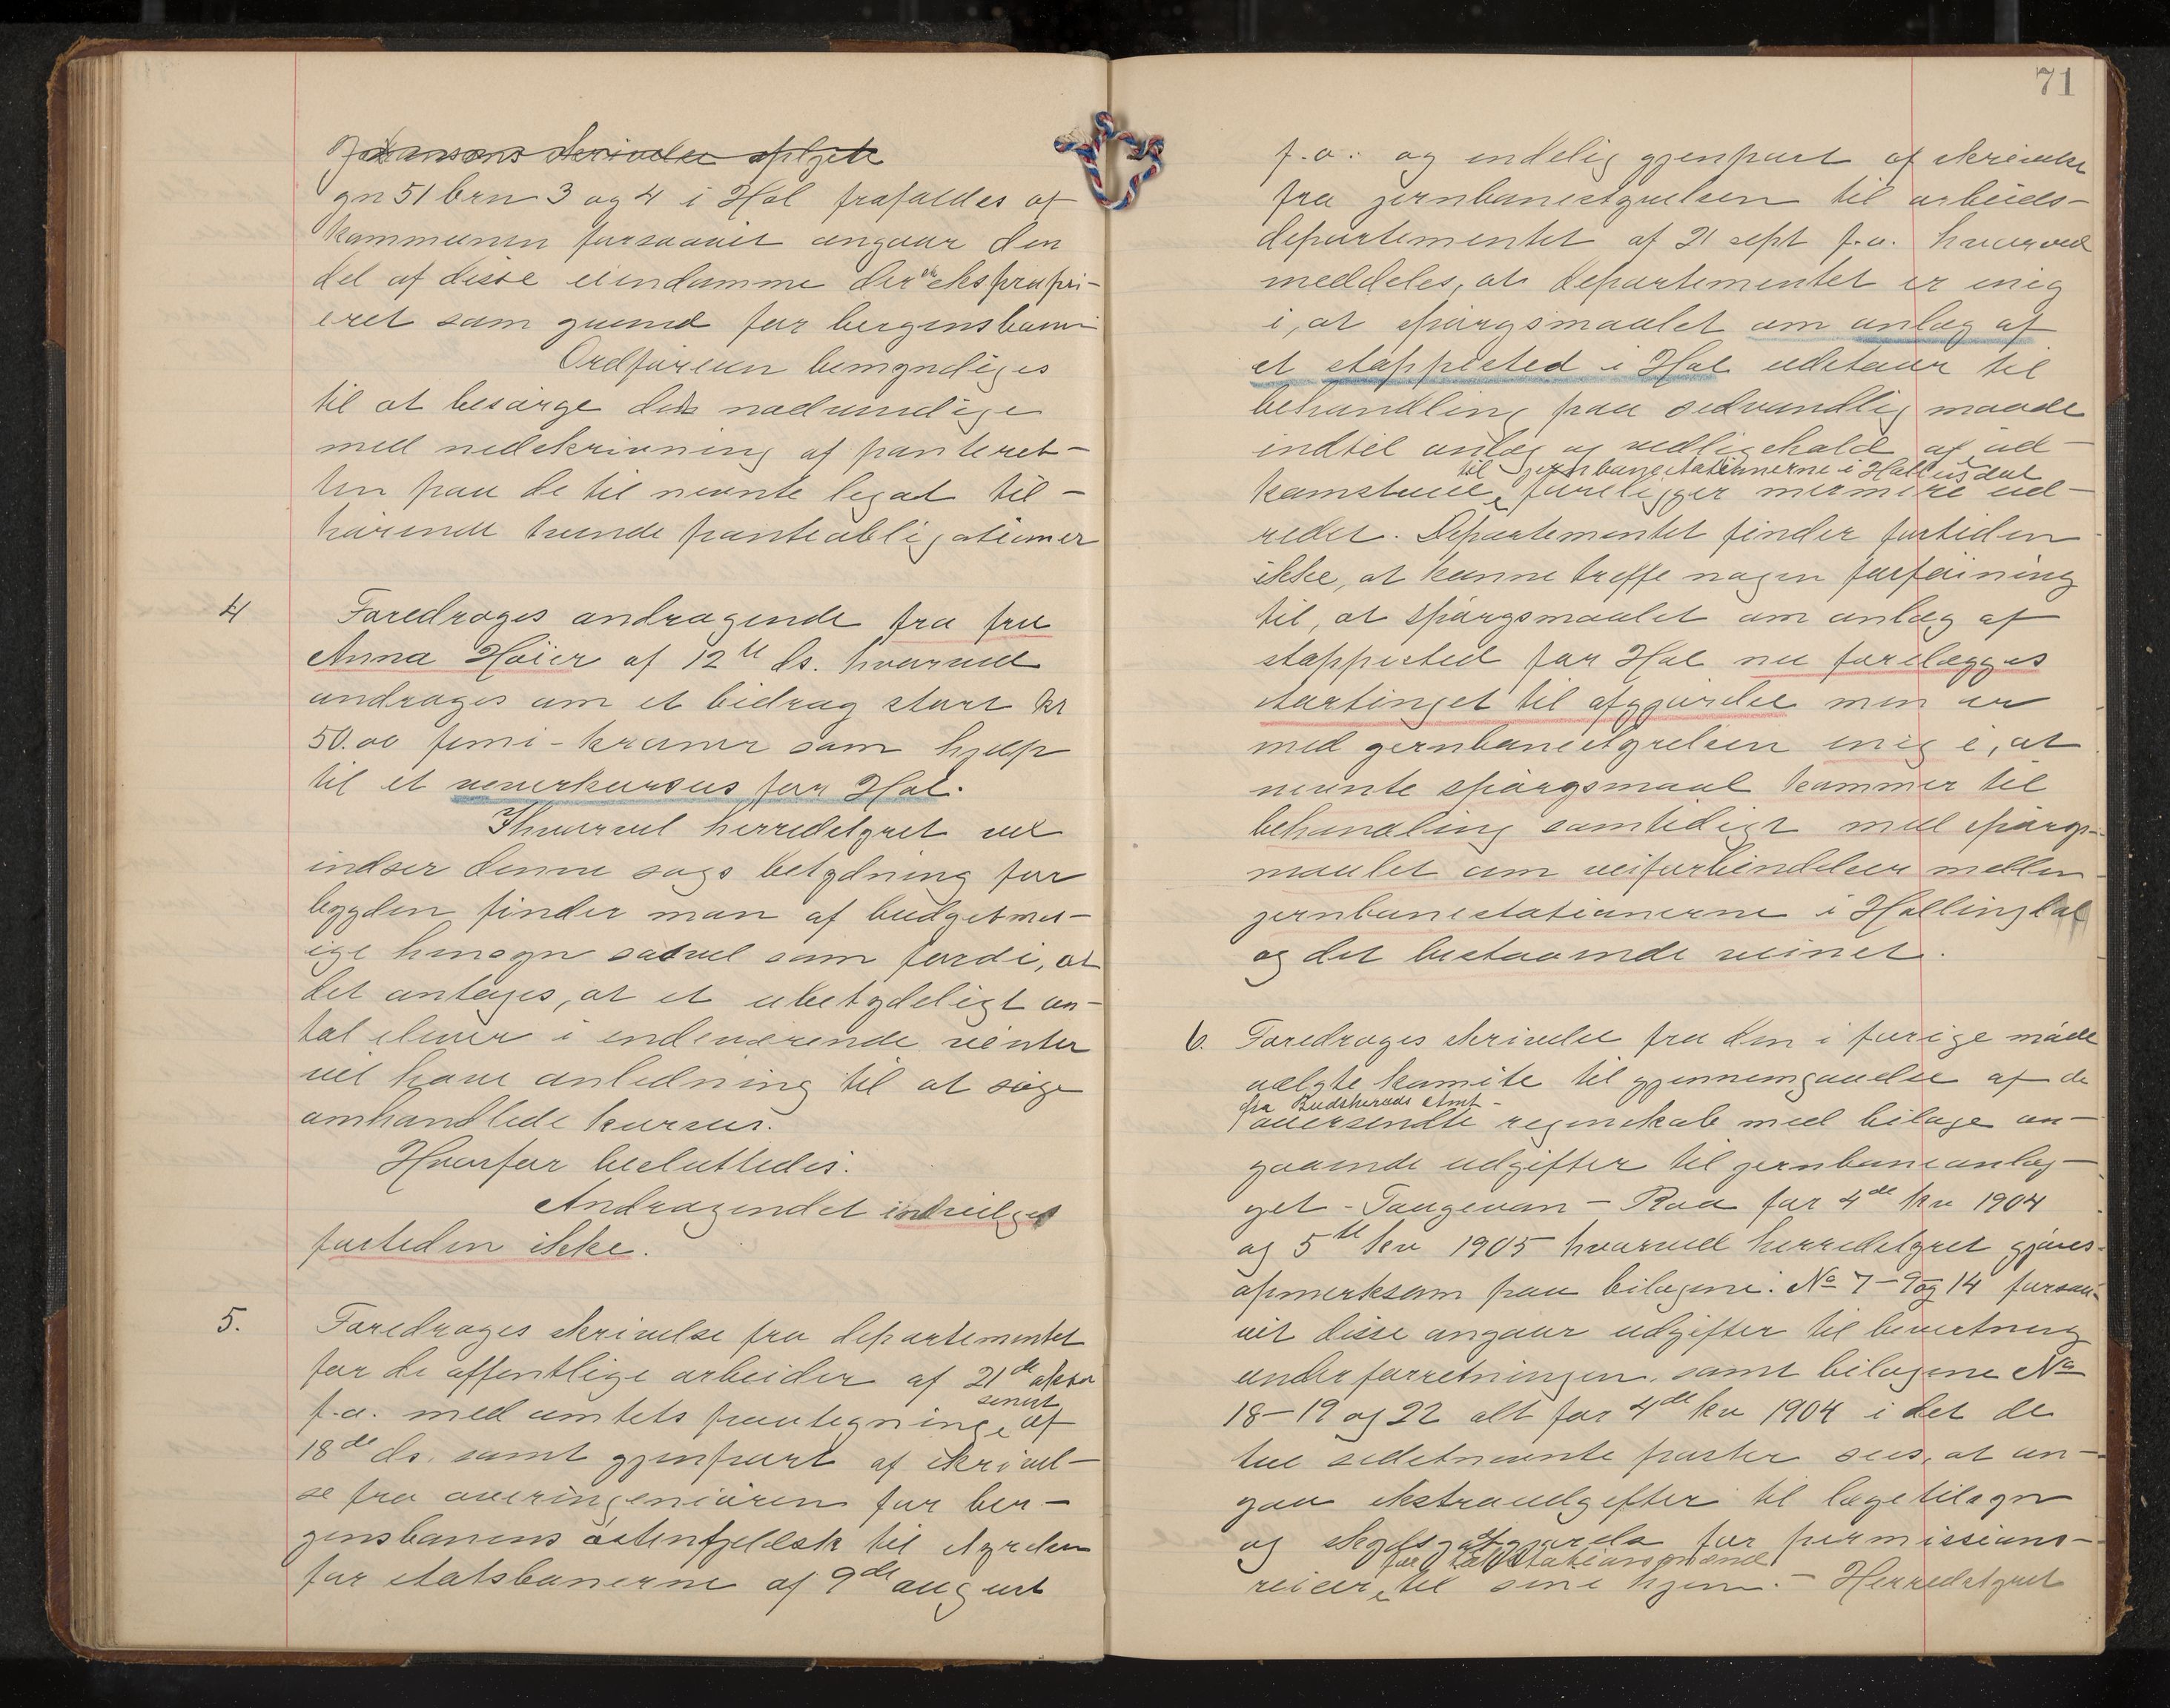 Johansons skrivelse
gn 51 brn 3 og 4 i Hol frafaldes af
kommunen forsaavit angaar den
del af disse eiendomme der er ekspropri-
eret som grund for bergensbanen
Ordføreren bemyndiges
til at besørge det nødvendige
med nedskrivning af panteret-
ten paa de til nevnte legat til-
hørende tvende panteobligationer
4 Foredroges andragende fra fru
Anna Høier af 12te ds. hvorved
androges om et bidrag stort kr
50.00 femi-kroner som hjælp
til et væverkursus for Hol.
Ihvorvel herredstyret vel
indser denne sags betydning for
bygden finder man af budgetmes-
ige hensyn saavel som fordi, at
det antages, at et ubetydeligt an-
tal elever i indeværende vinter
vil have anledning til at søge
omhandlede kursus.
Hvorfor besluttedes:
Andragendet indvilges
fortiden ikke.
5. Foredroges skrivelse fra departementet
for de offentlige arbeider af 21de oktbr
f.a. med amtets paategning senest af
18de ds. samt gjenpart af skrivel-
se fra overingeniøren for ber-
gensbanens østenfjeldsk til styrelsen
for statsbanerne af 9de august
71
f.a. og endelig gjenpart af skrivelse
fra jernbanestyrelsen til arbeids-
departementet af 21 sept f.a. hvorved
meddeles, at departementet er enig
i, at spørgsmaalet om anlæg af
et stoppested i Hol udstaar til
behandling paa sedvandlig maade
indtil anlæg og vedligehold af ad-
til jernbanestationnerne i Hallingdal
komstveie foreligger nermere ud-
redet. Departementet finder fortiden
ikke, at kunne treffe nogen forføining
til, at spørgsmaalet om anlæg af
stoppested for Hol nu forelægges
stortinget til afgjørelse men er
med jernbanestyrelsen enig i, at
nevnte spørgsmaal kommer til
behandling samtidigt med spørgs-
maalet om veiforbindelser mellem
jernbanestationerne i Hallingdal
og det bestaaende veinet.
6. Foredroges skrivelse fra den i forige møde
valgte komite til gjennemgaaelse af de
fra Buskeruds Amt-
oversendte regnskab med bilage an-
gaaende udgifter til jernbaneanlæg-
get - Taugevan - Roa for 4de kv 1904
og 5te kv 1905 hvorved herredstyret gjøres
opmerksom paa bilagene No 7-9 og 14 forsaa-
vit disse angaar udgifter til bevertning
under forretningen, samt bilagene No
18-19 og 22 alt for 4de kv 1904 i det de
tre sidstnevnte poster sees, at an-
gaa ekstraudgifter til lægetilsyn
og skydsgodtgjørelse for permissions-
reiser til sine hjem. - Herredstyret